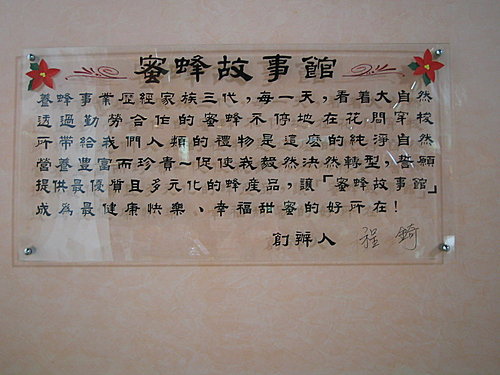 蜜蜂故事館
養蜂事業歷經家族三代，每一天，看着大自然
透過勤勞合作的蜜蜂不停地在花間穿梭
所帶給我們人類的禮物是這麼的純淨自然
營養豐富而珍貴－促使我毅然決然轉型，誓願
提供最優質且多元化的蜂産品，讓「蜜蜂故事館」
成為最健康快樂、幸福甜蜜的好所在！
創辦人 程錡